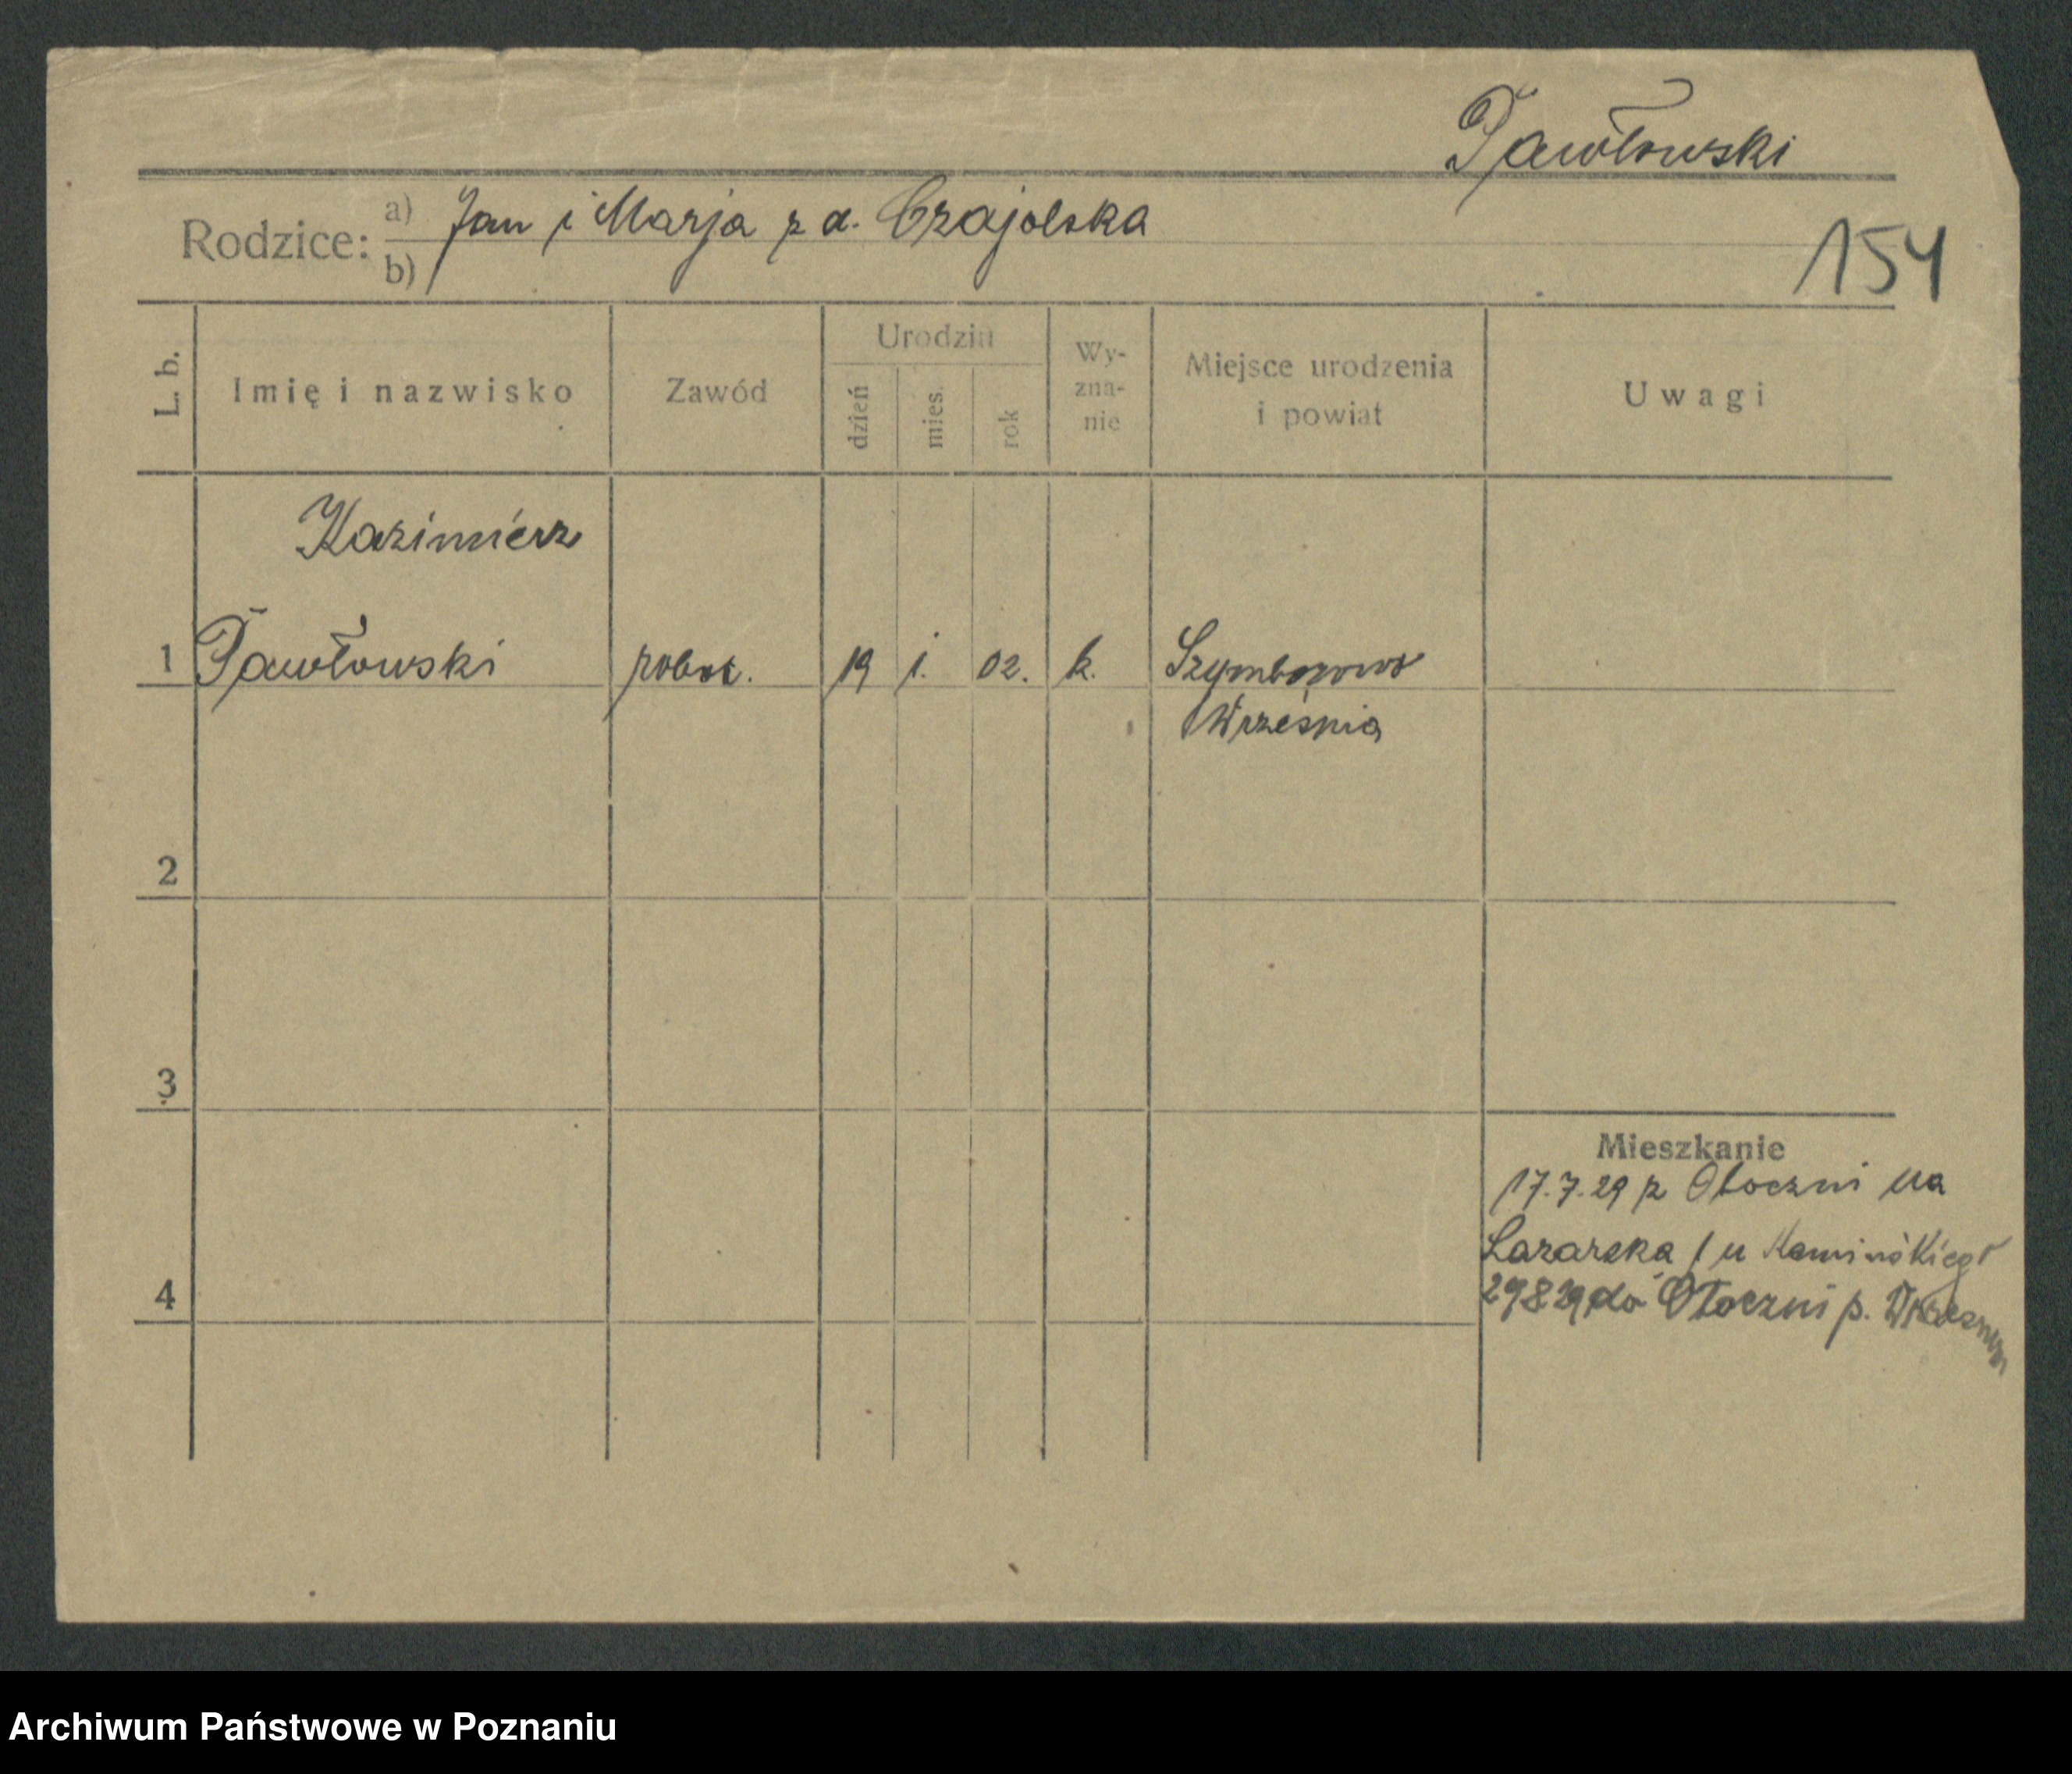 Pawłowski
Rodzice: a) Jan i Marja z d. Czajolska
b)
154
L. b. Imię i nazwisko Zawód Urodził dzień mies. rok Wy-zna-nie Miejsce urodzenia i powiat Uwagi
Kazimierz
1 Pawłowski robot. 19 1. 02. k. Szymborowo
Września
2
3
Mieszkanie
17.7.29 z Otoczni na
Łazarska 1 u Kamińskiego
4
29 8 29 do Otoczni p.
Archiwum Państwowe w Poznaniu